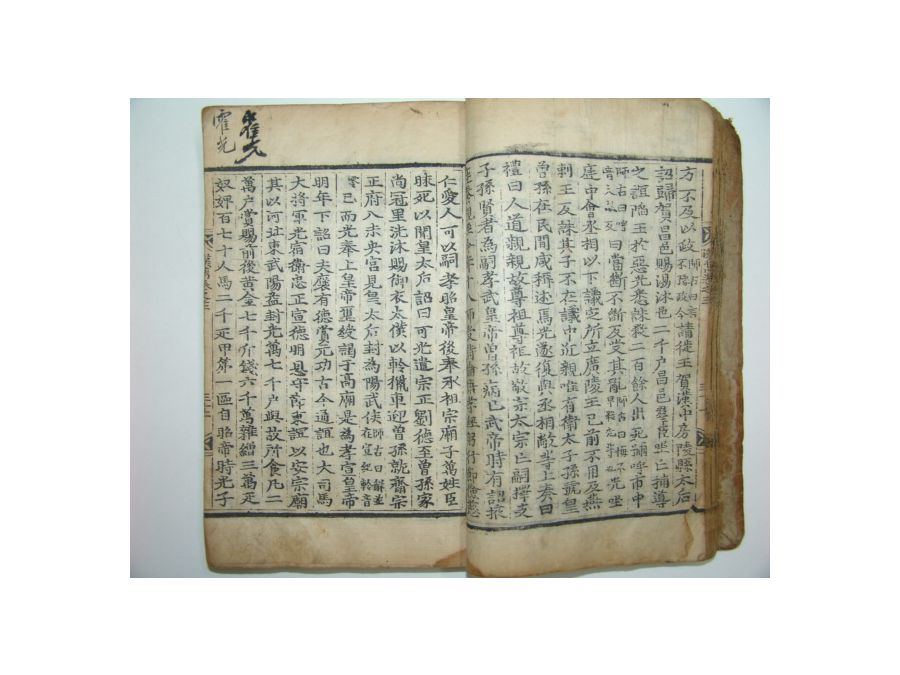 方不及以政師古曰言不豫政令請徙王賀漢中房陵縣太后
詔歸賀昌邑賜湯沐邑二千户昌邑羣臣坐亡輔導
之誼陷王於惡光悉誅殺二百餘人出死號呼市中
曰當斷不斷反受其亂光坐
庭中會丞相以下議定所立廣陵王已前不用及燕
剌王反誅其子不在議中近親唯有衛太子孫號皇
曾孫在民間咸稱述焉光遂復與丞相敞等上奏曰
禮曰人道親親故尊祖尊祖故敬宗太宗亡嗣擇支
子孫賢者為嗣孝武皇帝曾孫病已武帝時有詔掖
仁愛人可以嗣孝昭皇帝後奉承祖宗廟子萬姓臣
昧死以聞皇太后詔曰可光遣宗正劉德至曾孫家
尚冠里洗沐賜御衣太僕以軨獵車迎曾孫就齋宗
正府入未央宫見皇太后封為陽武侯
已而光奉上皇帝璽綬謁于高廟是為孝宣皇帝
明年下詔曰夫襃有德賞元功古今通誼也大司馬
大將軍光宿衛忠正宣德明恩守節秉誼以安宗廟
其以河北東武陽益封光萬七千户與故所食凡二
萬户賞賜前後黄金七千斤錢六千萬雜繒三萬疋
奴婢百七十人馬二千疋甲第一區自昭帝時光子
霍光
霍光